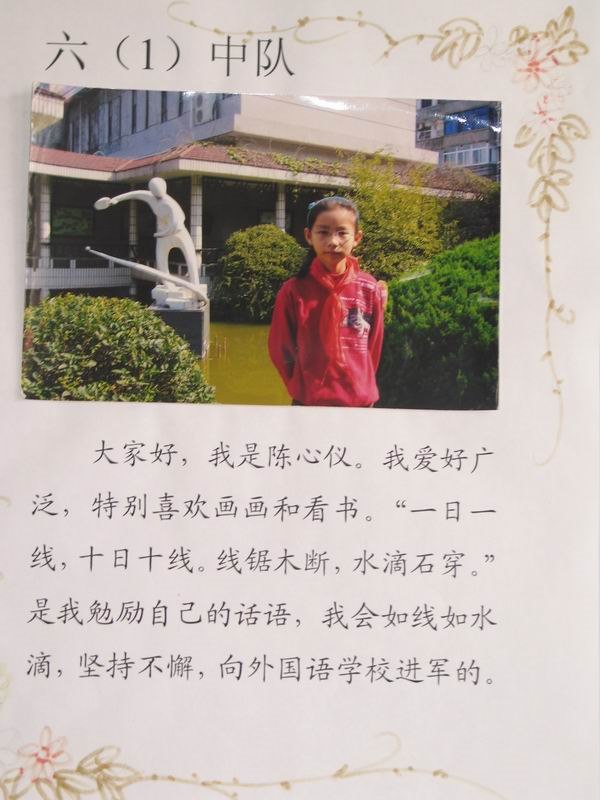 六（1）中队
大家好，我是陈心仪。我爱好广
泛，特别喜欢画画和看书。“一日一
线，十日十线。线锯木断，水滴石穿。”
是我勉励自己的话语，我会如线如水
滴，坚持不懈，向外国语学校进军的。